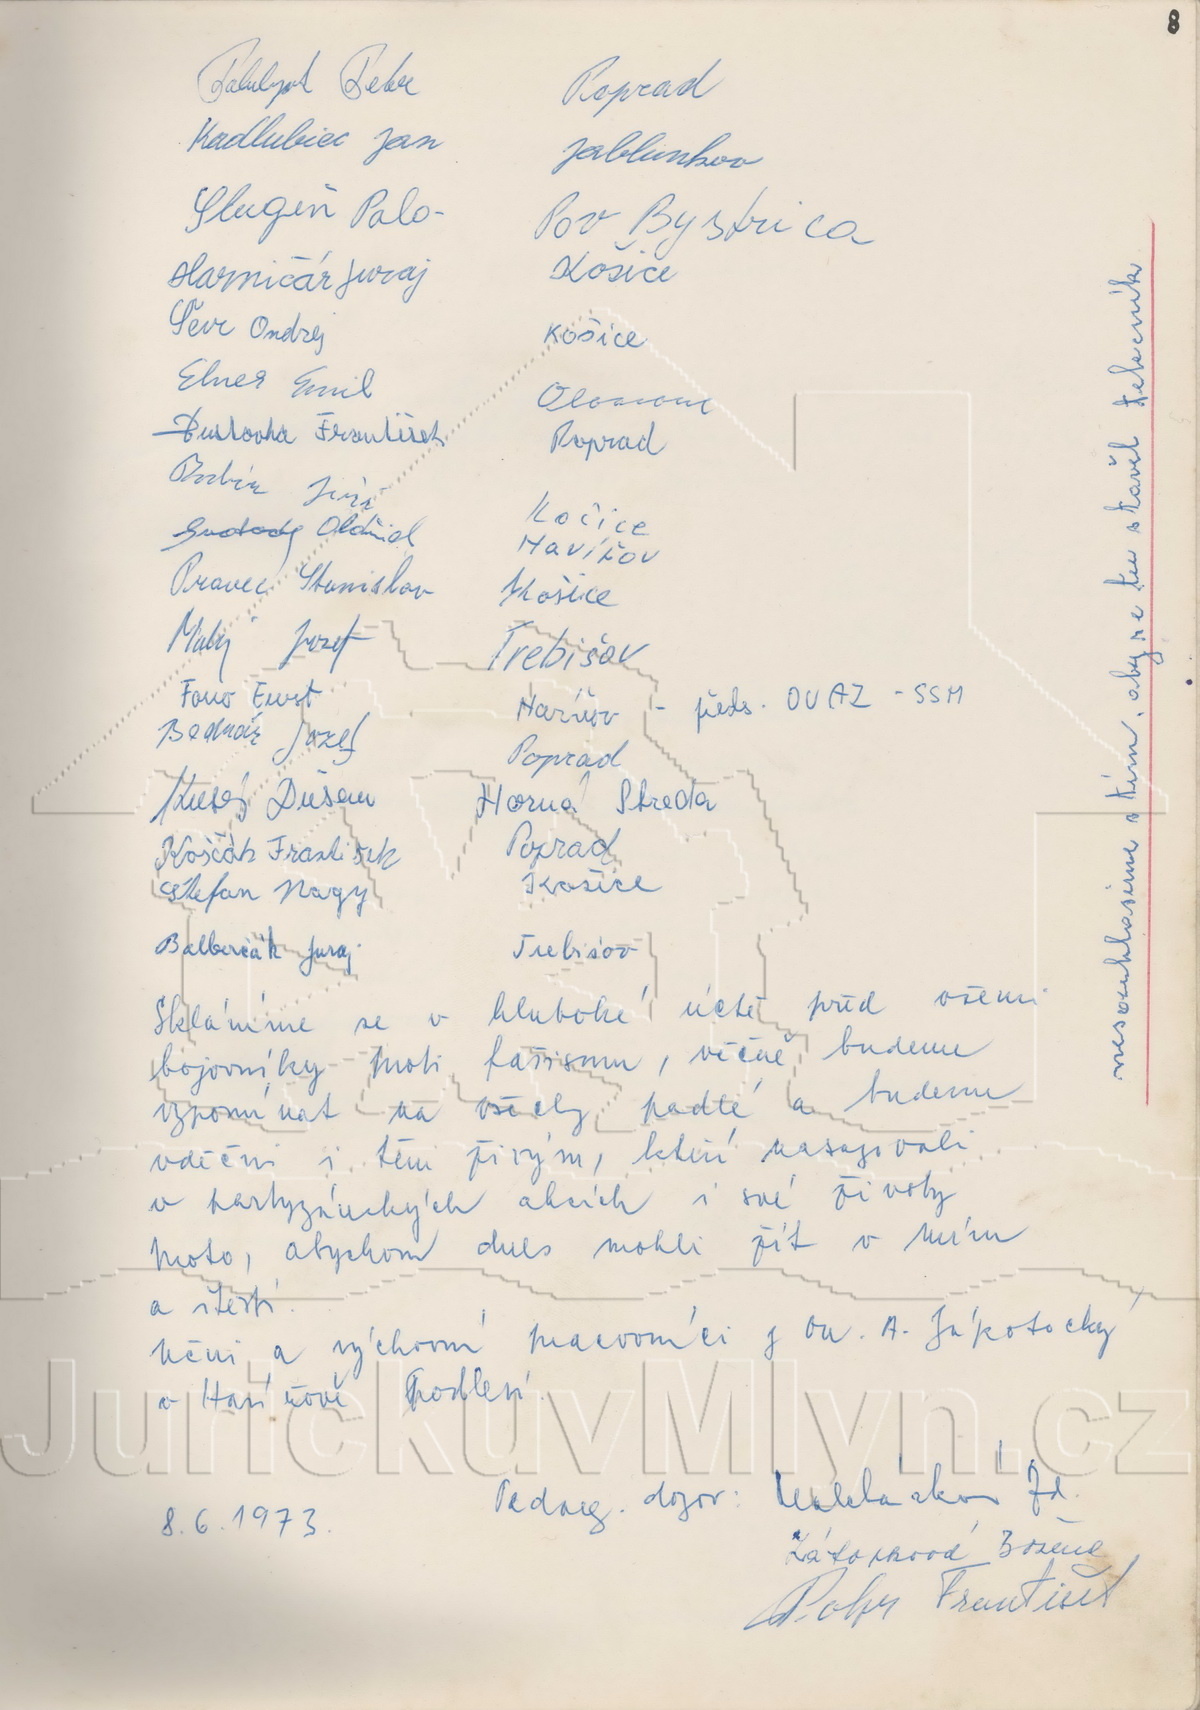 8
Petr Poprad
Kadlubiec Jan Jablunkov
Slugeň Palo- Pov Bystrica
Harničár Juraj Košice
Ševc Ondrej Košice
Elner Emil Olomouc
František Poprad
Jiří Košice
Svoboda Oldřich Havířov
Pravec Stanislav Košice
Malý Jozef Trebišov
Fono Ernst Havířov - předs. OV AZ - SSM
Bednár Jozef Poprad
Dušan Horná Streda
Koščák František Poprad
Štefan Nagy Košice
Balberčák Juraj Trebišov
Skláníme se v hluboké úctě před všemi
bojovníky proti fašismu, věčně budeme
vzpomínat na všechy padlé a budeme
vděčni i těm živým, kteří nasazovali
v partyzánských akcích i své životy
proto, abychom dnes mohli žít v míru
a štěstí.
Učni a výchovní pracovníci z OU. A. Zápotocký
v Havířově Podlesí.
8.6.1973.
Pedagog. dozor: Zd.
Zátorková Božena
František
nesouhlasíme s tím, aby se tu stavěl rekreník
JurickuvMlyn.cz